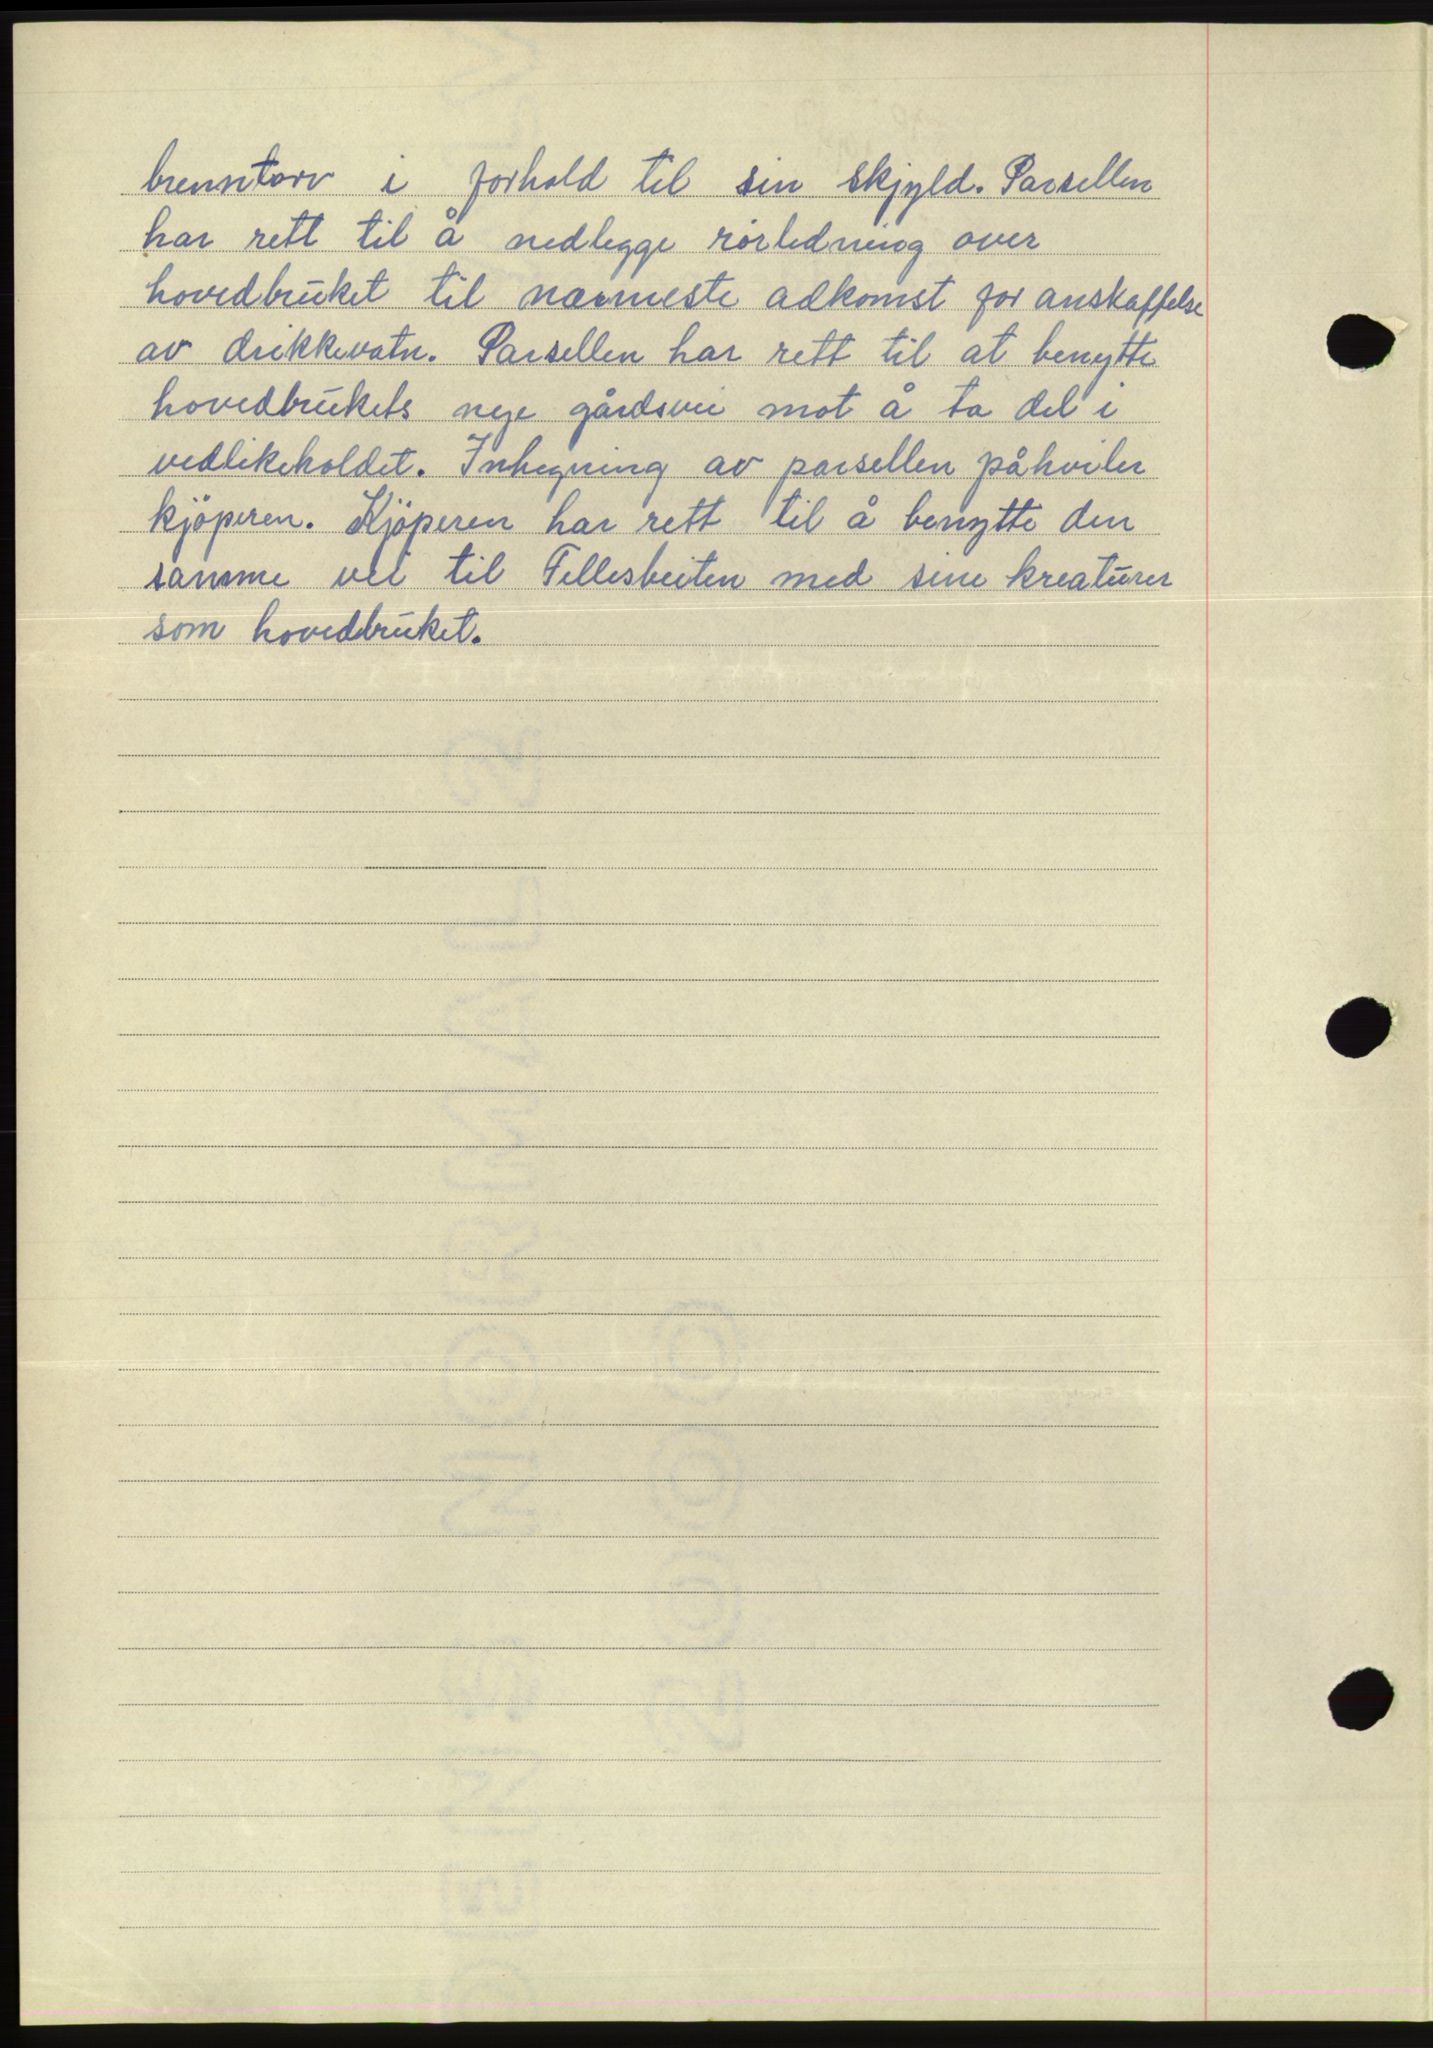 brenntorv i forhold til sin skjyld. Parsellen
har rett til å nedlegge rörledning over
hovedbruket til nærmeste adkomst for anskaffelse
av drikkevatn. Parsellen har rett til at benytte
hovedbrukets nye gårdsvei mot å ta del i
vedlikeholdet. Inhegning av parsellen påhviler
kjöperen. Kjöperen har rett til å benytte den
samme vei til Fellesbeiten med sine kreaturer
som hovedbruket.